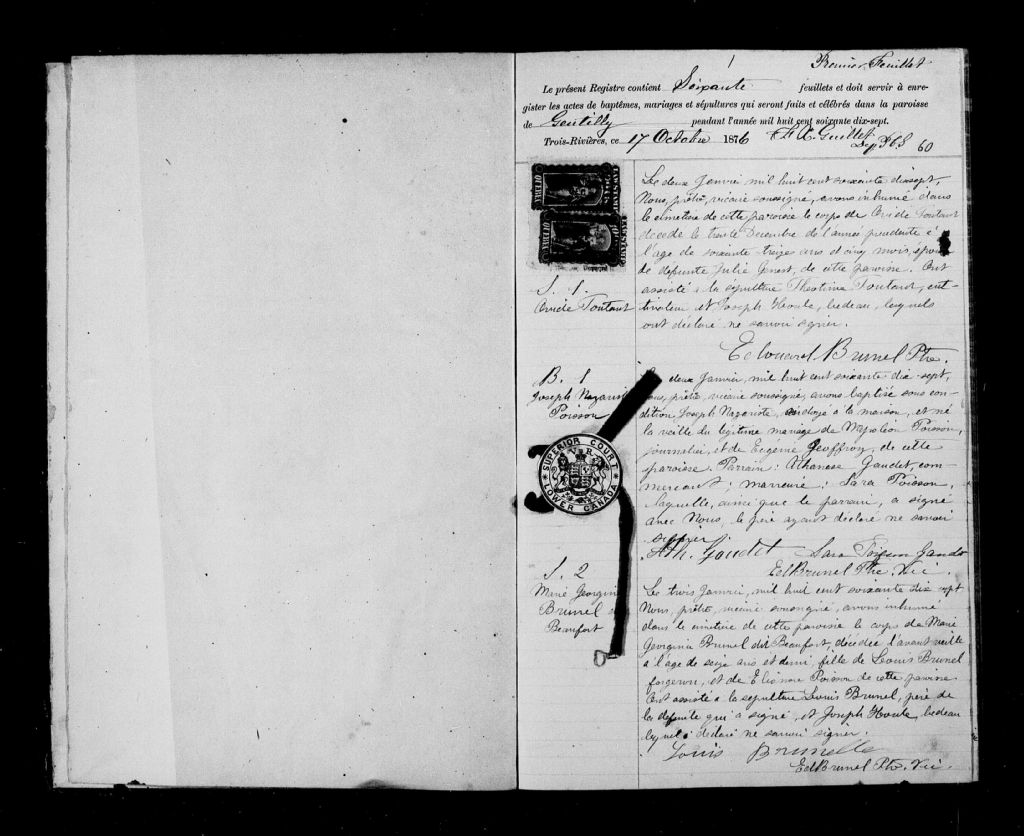 1
Premier Feuillet
Le présent Registre contient Soixante feuillets et doit servir à enre-
gister les actes de baptêmes, mariages et sépultures qui seront faits et célébrés dans la paroisse
de Gentilly pendant l'année mil huit cent soixante dix-sept.
Trois-Rivières, ce 17 Octobre 1876 Guillet
Dep 60
S. 1.
Toutant
Le deux Janvier mil huit cent soixante dixsept,
Nous, prêtre, vicaire soussigné, avons inhumé dans
le cimetière de cette paroisse le corps de Toutant
décédé le trente Décembre de l'année précédente à
l'âge de soixante treize ans et cinq mois, époux
de défunte Julie Genest, de cette paroisse. Ont
assisté à la sépulture Théotime Toutant, cul-
tivateur et Joseph Houle, bedeau, lesquels
ont déclaré ne savoir signer.
Edouard Brunel Ptre.
B. 1
Joseph Nazariste
Poisson
Le deux Janvier, mil huit cent soixante dix-sept,
Nous, prêtre, vicaire soussigné, avons baptisé sous con-
dition Joseph Nazariste, ondoyé à la maison, et né
la veille du légitime mariage de Napoléon Poisson,
journalier, et de Eugénie Geoffroy, de cette
paroisse. Parrain: Athanase Gaudet, com-
mercant; marraine: Sara Poisson,
laquelle, ainsi que le parrain, a signé
avec Nous, le père ayant déclaré ne savoir
signer.
Ath. Gaudet Sara
Ed Brunel Ptre. Vic.
SUPERIOR COURT
V R
LOWER CANADA
S. 2
Marie Georgina
Brunel
Beaufort
Le trois Janvier, mil huit cent soixante dix sept
Nous, prêtre, vicaire soussigné, avons inhumé
dans le cimetière de cette paroisse le corps de Marie
Georgina Brunel dit Beaufort, décédée l'avant veille
à l'âge de seize ans et demi, fille de Louis Brunel
forgeron, et de Eléonore Poisson de cette paroisse
Ont assisté à la sépulture Louis Brunel, père de
la défunte qui a signé, et Joseph Houle, bedeau
lequel a déclaré ne savoir signer.
Louis Brunelle
Ed Brunel Ptre. Vic.